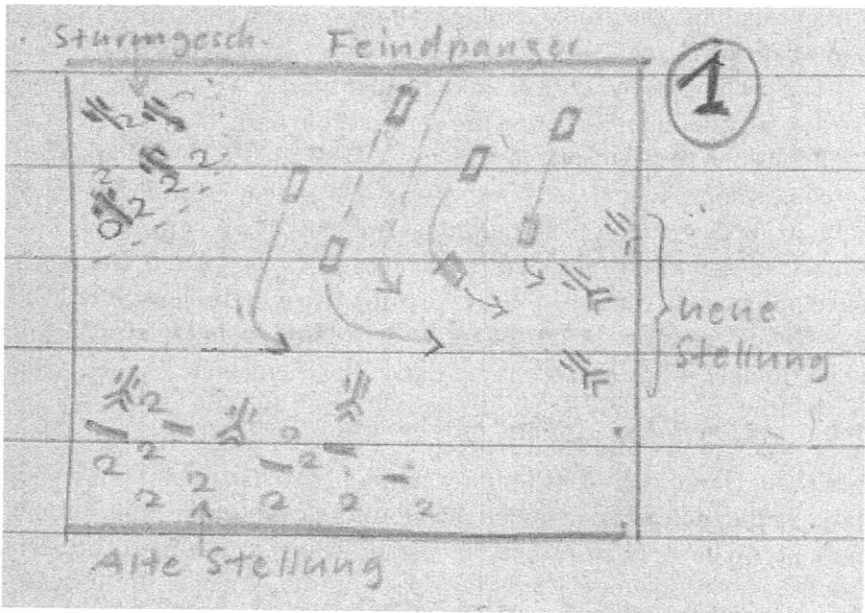 Sturmgesch. Feindpanzer
1
neue
Stellung
Alte Stellung